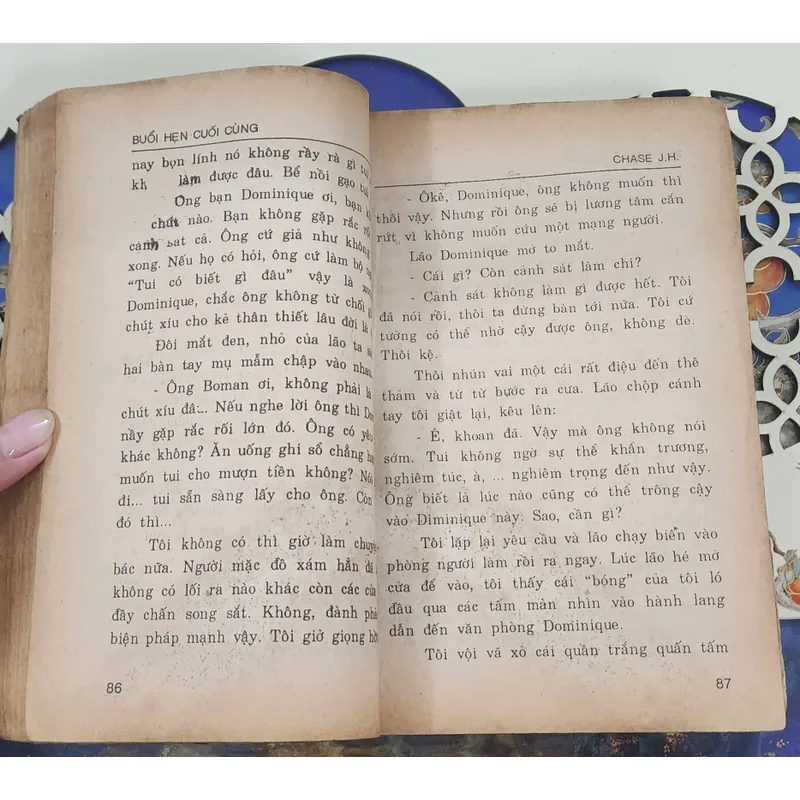 BUỔI HẸN CUỐI CÙNG
nay bọn lính nó không rầy rà gì tui
kh làm được đâu. Bể nồi gạo tui
Ông bạn Dominique ơi, bạn
chút nào. Bạn không gặp rắc rối
cảnh sát cả. Ông cứ giả như không
xong. Nếu họ có hỏi, ông cứ làm bộ
“Tui có biết gì đâu” vậy là xong
Dominique, chắc ông không từ chối
chút xíu cho kẻ thân thiết lâu đời là
Đôi mắt đen, nhỏ của lão ta
hai bàn tay mụ mẫm chập vào nhau
- Ông Boman ơi, không phải là
chút xíu đâ... Nếu nghe lời ông thì Do
nầy gặp rắc rối lớn đó. Ông có yêu
khác không? Ăn uống ghi sổ chẳng hạ
muốn tui cho mượn tiền không? Nói
đi... tui sẵn sàng lấy cho ông. Còn
đó thì...
Tôi không có thì giờ làm chuyệ
bác nữa. Người mặc đồ xám hẳn đã
không có lối ra nào khác còn các cửa
đầy chấn song sắt. Không, đành phả
biện pháp mạnh vậy. Tôi giở giọng hờn
86
CHASE J.H.
- Ôkê, Dominique, ông không muốn thì
thôi vậy. Nhưng rồi ông sẽ bị lương tâm cắn
rứt vì không muốn cứu một mạng người.
Lão Dominique mở to mắt.
- Cái gì? Còn cảnh sát làm chi?
- Cảnh sát không làm gì được hết. Tôi
đã nói rồi, thôi ta đừng bàn tới nữa. Tôi cứ
tưởng có thể nhờ cậy được ông, không dè.
Thôi kệ.
Thôi nhún vai một cái rất điệu đến thê
thảm và từ từ bước ra cửa. Lão chộp cánh
tay tôi giật lại, kêu lên:
- Ê, khoan đã. Vậy mà ông không nói
sớm. Tui không ngờ sự thể khẩn trương,
nghiêm túc, à, ... nghiêm trọng đến như vậy.
Ông biết là lúc nào cũng có thể trông cậy
vào Diminique này. Sao, cần gì?
Tôi lặp lại yêu cầu và lão chạy biến vào
phòng người làm rồi ra ngay. Lúc lão hé mở
cửa để vào, tôi thấy cái “bóng” của tôi ló
đầu qua các tấm màn nhìn vào hành lang
dẫn đến văn phòng Dominique.
Tôi vội vã xỏ cái quần trắng quấn tấm
87